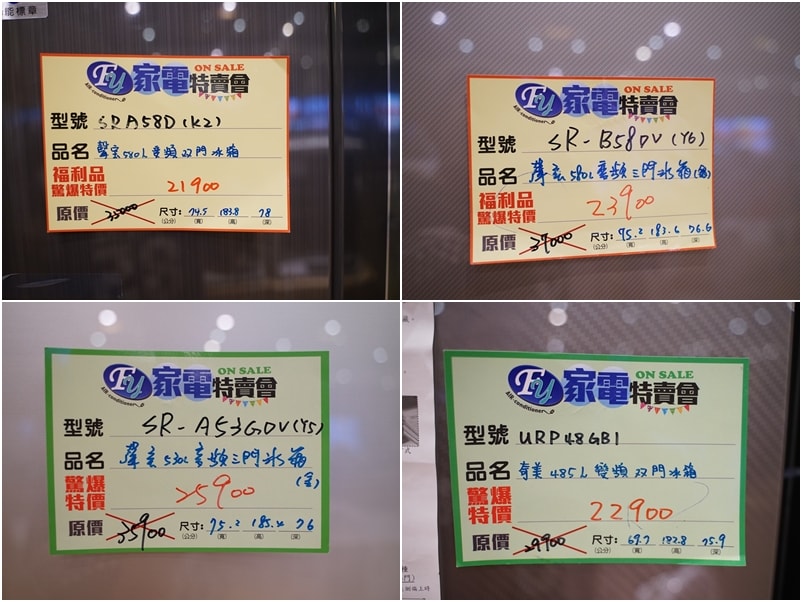 能標章
FU 家電特賣會 ON SALE
Air-conditioner
型號 SRA58D(K2)
品名 聲宝580L变頻双門冰箱
福利品
驚爆特價 21900
原價 33000 尺寸: 74.5 183.8 78
(公分) (寬) (高) (深)
FU 家電特賣會 ON SALE
Air-conditioner
型號 SR-B58DV(Y6)
品名 聲宝580L变頻三門冰箱
福利品
驚爆特價 23900
原價 37000 尺寸: 75.2 183.6 76.6
(公分) (寬) (高) (深)
FU 家電特賣會 ON SALE
Air-conditioner
型號 SR-A53GDV(Y5)
品名 聲宝530L变頻三門冰箱
驚爆
特價 25900
原價 35900 尺寸: 75.2 185.4 76
(公分) (寬) (高) (深)
FU 家電特賣會 ON SALE
Air-conditioner
型號 URP48GB1
品名 奇美485L變頻双門冰箱
驚爆
特價 22900
原價 29900 尺寸: 69.7 182.8 75.9
(公分) (寬) (高) (深)